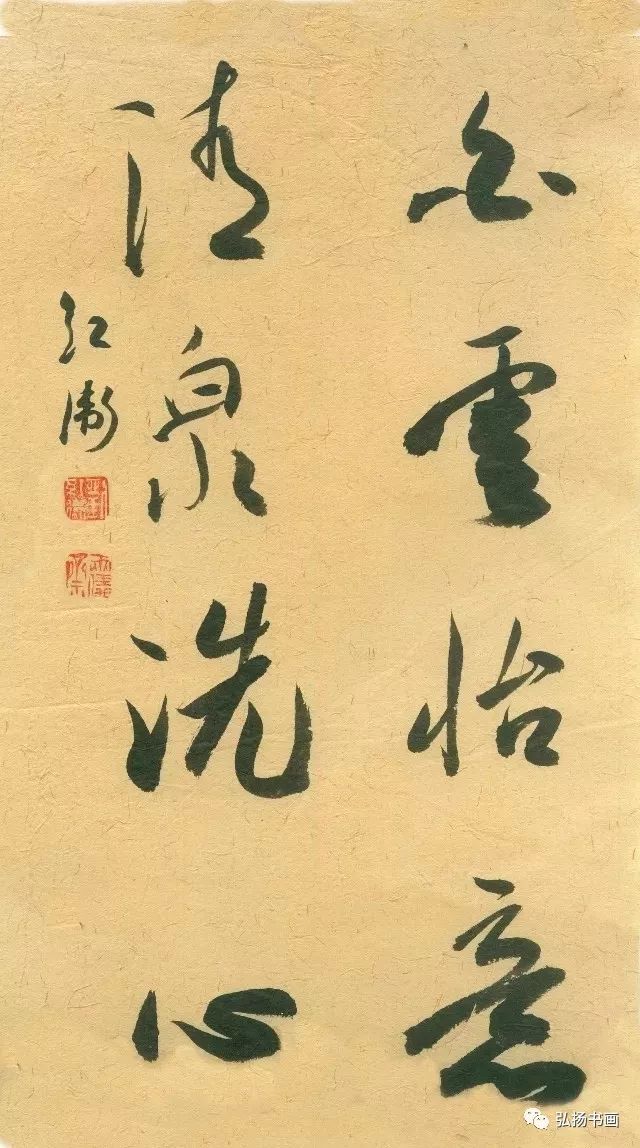 白雲怡意
清泉洗心
红衛
弘扬书画